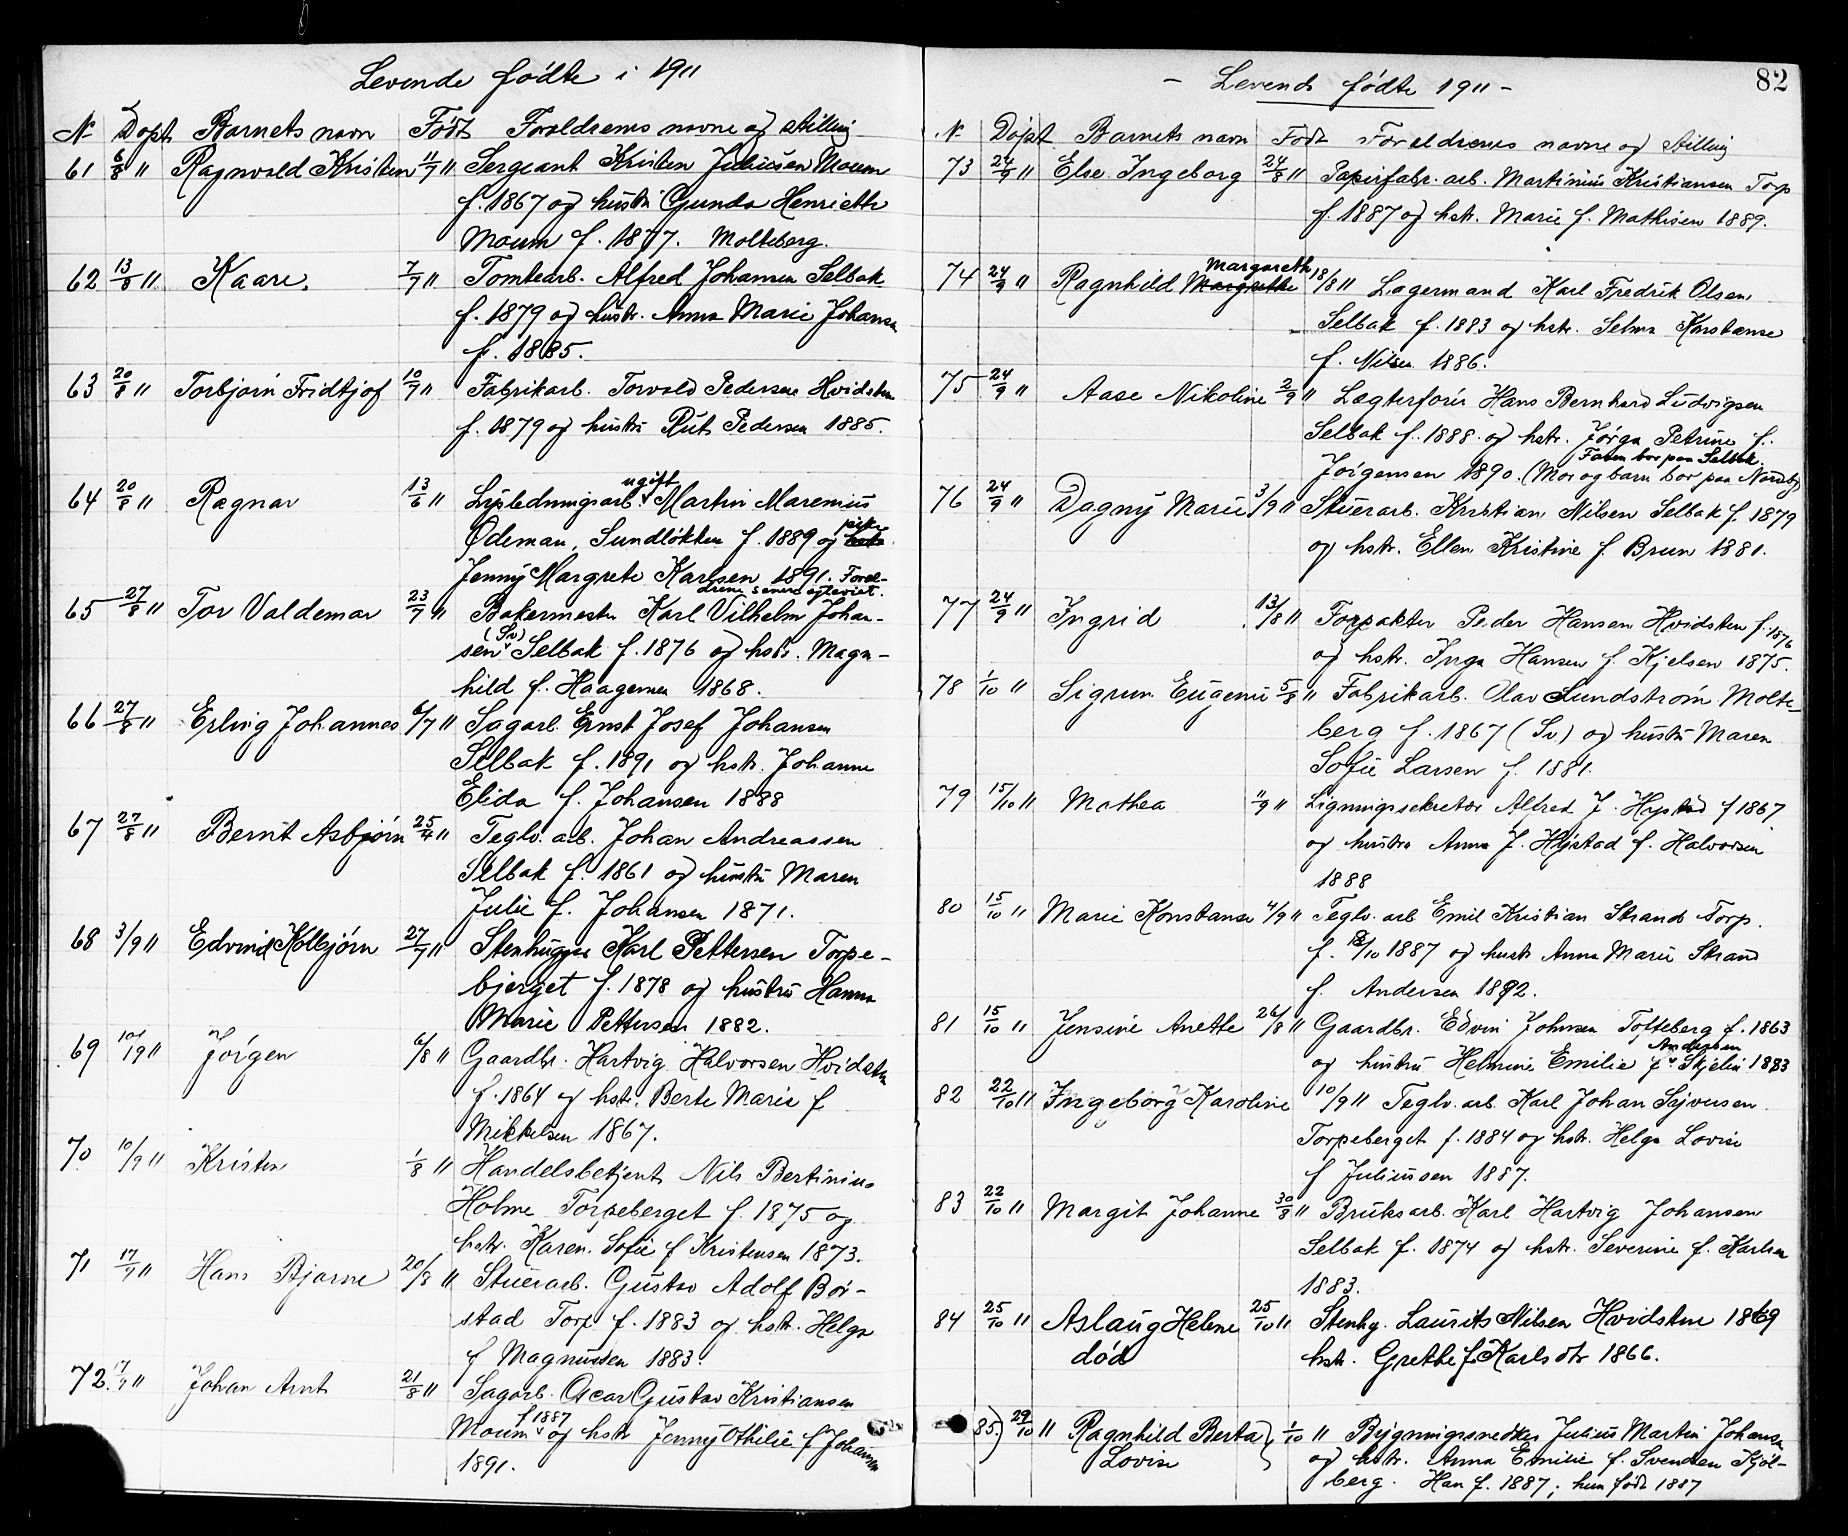 Levende fødte i 1911
N. Døpt Barnets navn Født Foreldrenes navne og stilling
61 6/8 " Ragnvald Kristen 11/7 " Sergeant Kristen Juliusen Moum
f. 1867 og hustru Gunda Henriette
Moum f. 1877. Molteberg.
62 13/8 " Kaare. 7/7 " Tomtearb. Alfred Johansen Selbak
f. 1879 og hustr. Anna Marie Johansen
f. 1885.
63 20/8 " Torbjørn Fridtjof 10/7 " Fabrikarb. Torvald Pedersen Hvidsten
f. 1879 og hustru Rut Pedersen 1885.
64 20/8 " Ragnar 13/6 " ugift Martin Marenius
Ødeman, Sundløkken f. 1889 og pike
Jenny Margrete Karlsen 1891. Forel-
drene senere egteviet.
65 27/8 " Tor Valdemar 23/7 " Bakermester Karl Vilhelm Johan-
sen (Sv) Selbak f. 1876 og hstr. Magn-
hild f. Haagensen 1868.
66 27/8 " Erling Johannes 6/7 " Sagarb. Ernst Josef Johansen
Selbak f. 1891 og hstr. Johanne
Elida f. Johansen 1888
67 27/8 " Bernt Asbjørn 25/4 " Teglv. arb. Johan Andreassen
Selbak f. 1861 og hustru Maren
Julie f. Johansen 1871.
68 3/9 " Edvin Kolbjørn 27/7 " Stenhugger Karl Pettersen Torpe-
bjerget f. 1878 og hustru Hanna
Marie Pettersen 1882.
69 10/9 " Jørgen 6/8 " Gaardbr. Hartvig Halvorsen Hvidsten
f. 1864 og hstr. Berte Marie f
Mikkelsen 1867.
70 10/9 " Kristen 1/8 " Handelsbetjent Nils Bertinius
Holme Torpeberget f. 1875 og
hstr. Karen Sofie f Kristensen 1873.
71 17/9 " Hans Bjarne 20/8 " Stuerarb. Gustav Adolf Bør-
stad Torp f. 1883 og hstr. Helga
f Magnussen 1883.
72 17/9 " Johan Arnt 21/8 " Sagarb. Oscar Gustav Kristiansen
Moum f 1887 og hstr Jenny Othilie f Johansen
1891.
82
- Levende fødte 1911 -
N. Døpt Barnets navn Født Foreldrenes navne og stilling
73 24/9 " Else Ingeborg 24/8 " Papirfabr. arb. Martinius Kristiansen Torp
f. 1887 og hstr. Marie f. Mathisen 1889.
74 24/9 " Ragnhild Margrethe Margareth 18/8 " Lagermand Karl Fredrik Olsen
Selbak f. 1883 og hstr. Selma Konstanse
f. Nilsen 1886.
75 24/9 " Aase Nikoline 2/9 " Lægterfører Hans Bernhard Ludvigsen
Selbak f. 1888 og hstr. Jørga Petrine f.
Faren bor paa Selbak.
Jørgensen 1890. (Mor og barn bor paa
76 24/9 " Dagny Marie 3/9 " Stuerarb. Kristian Nilsen Selbak f. 1879
og hstr. Ellen Kristine f Brun 1881.
77 24/9 " Ingrid 13/8 " Forpakter Peder Hansen Hvidsten f. 1876
og hstr. Inga Hansen f. Kjelsen 1875.
78 1/10 " Sigrun Eugenie 5/8 " Fabrikarb. Olav Sundstrøm Molte-
berg f. 1867 (Sv) og hustru Maren
Sofie Larsen f. 1881.
79 15/10 " Mathea 11/9 " Ligningssekretær Alfred J. Hystad f 1867
og hustru Anna J. Hystad f. Halvorsen
1888
80 15/10 " Marie Konstanse 4/9 " Teglv. arb Emil Kristian Strand Torp.
f. 18/10 1887 og hustr Anna Marie Strand
f. Andersen 1892.
81 15/10 " Jensine Anette 26/8 " Gaardbr. Edvin Johnsen Tofteberg f. 1863
og hustru Helmine Emilie f. Andersen Skjelin 1883
82 22/10 " Ingeborg Karoline 10/9 " Teglv. arb. Karl Johan Syversen
Torpeberget f. 1884 og hstr. Helga Lovise
f Juliussen 1887.
83 22/10 " Margit Johanne 30/8 " Bruksarb. Karl Hartvig Johansen
Selbak f. 1874 og hstr. Severine f. Karlsen
1883.
84 25/10 " Aslaug Helene 25/10 " Stenhg. Laurits Nilsen Hvidsten 1869
død hstr. Grethe f. Karlsdtr 1866.
85.) 29/10 " Ragnhild Berta 1/10 " Bygningssnedker Julius Martin Johansen
Lovise og hstr. Anna Emilie f. Svendsen Kjøl-
berg. Han f. 1887; hun født 1887